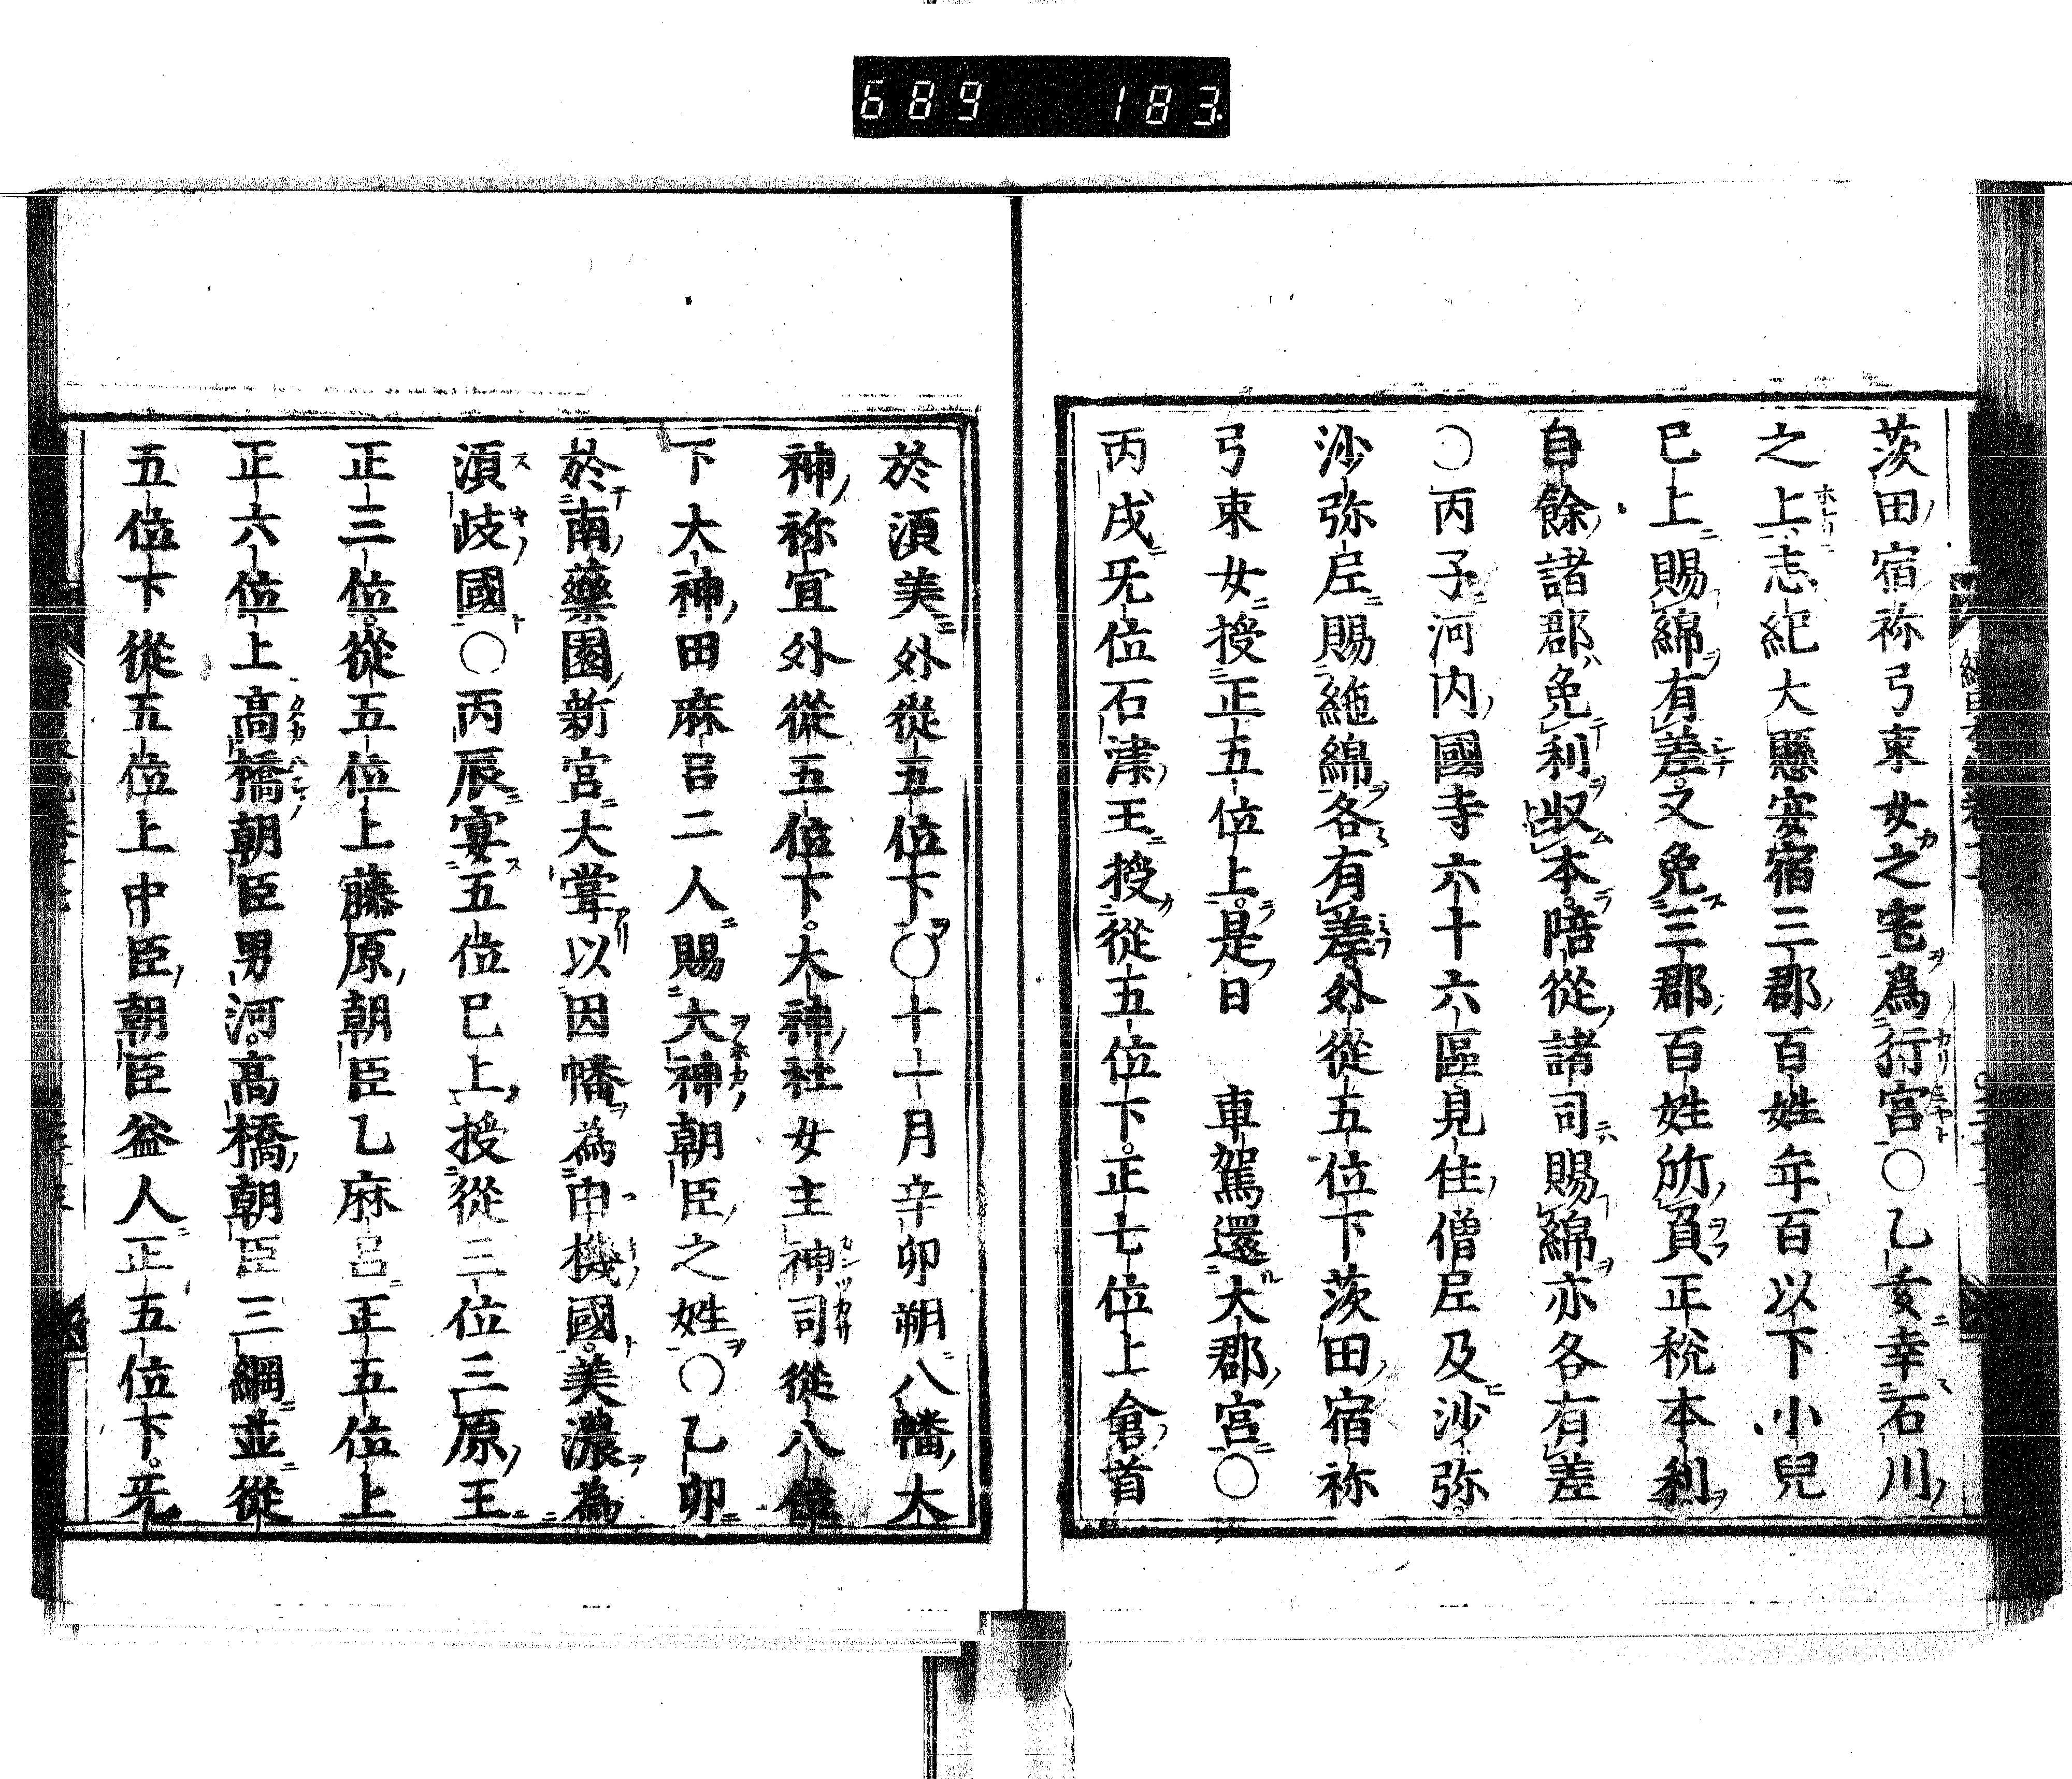 689 183
茨田宿祢弓束女之宅爲行宮〇乙亥幸石川
之上志紀大縣安宿三郡百姓年百以下小兒
巳上賜綿有差又免三郡百姓所負正税本利
自餘諸郡免利収本陪從諸司賜綿亦各有差
〇丙子河内國寺六十六區見住僧尼及沙弥
沙弥尼賜絁綿各有差外從五位下茨田宿祢
弓束女授正五位上是日 車駕還大郡宮〇
丙戌无位石津王授從五位下正七位上倉首
於須美外從五位下〇十一月辛卯朔八幡大
神祢宜外從五位下大神社女主神司從八位
下大神田麻呂二人賜大神朝臣之姓〇乙卯
於南藥園新宮大甞以因幡為由機國美濃為
須岐國〇丙辰宴五位巳上授從三位三原王
正三位從五位上藤原朝臣乙麻呂正五位上
正六位上高橋朝臣男河高橋朝臣三綱並從
五位下從五位上中臣朝臣益人正五位下无